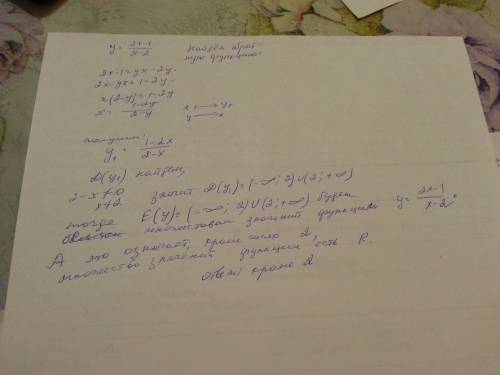 y = (2x-1)/(x-2) найдём обрат-
ную функцию:
2x-1 = yx-2y.
2x-yx = 1-2y.
x(2-y) = 1-2y
x = (1-2y)/(2-y) x → y₁
y → x
получим:
y₁ = (1-2x)/(2-x)
D(y₁) найдем,
2-x≠0
x≠2 значит D(y₁) = (-∞; 2)∪(2; +∞)
тогда E(y) = (-∞; 2)∪(2; +∞) будет
множеством значений функции y = (2x-1)/(x-2).
А это означает, кроме числа 2,
множество значений функции есть R.
Ответ: кроме 2